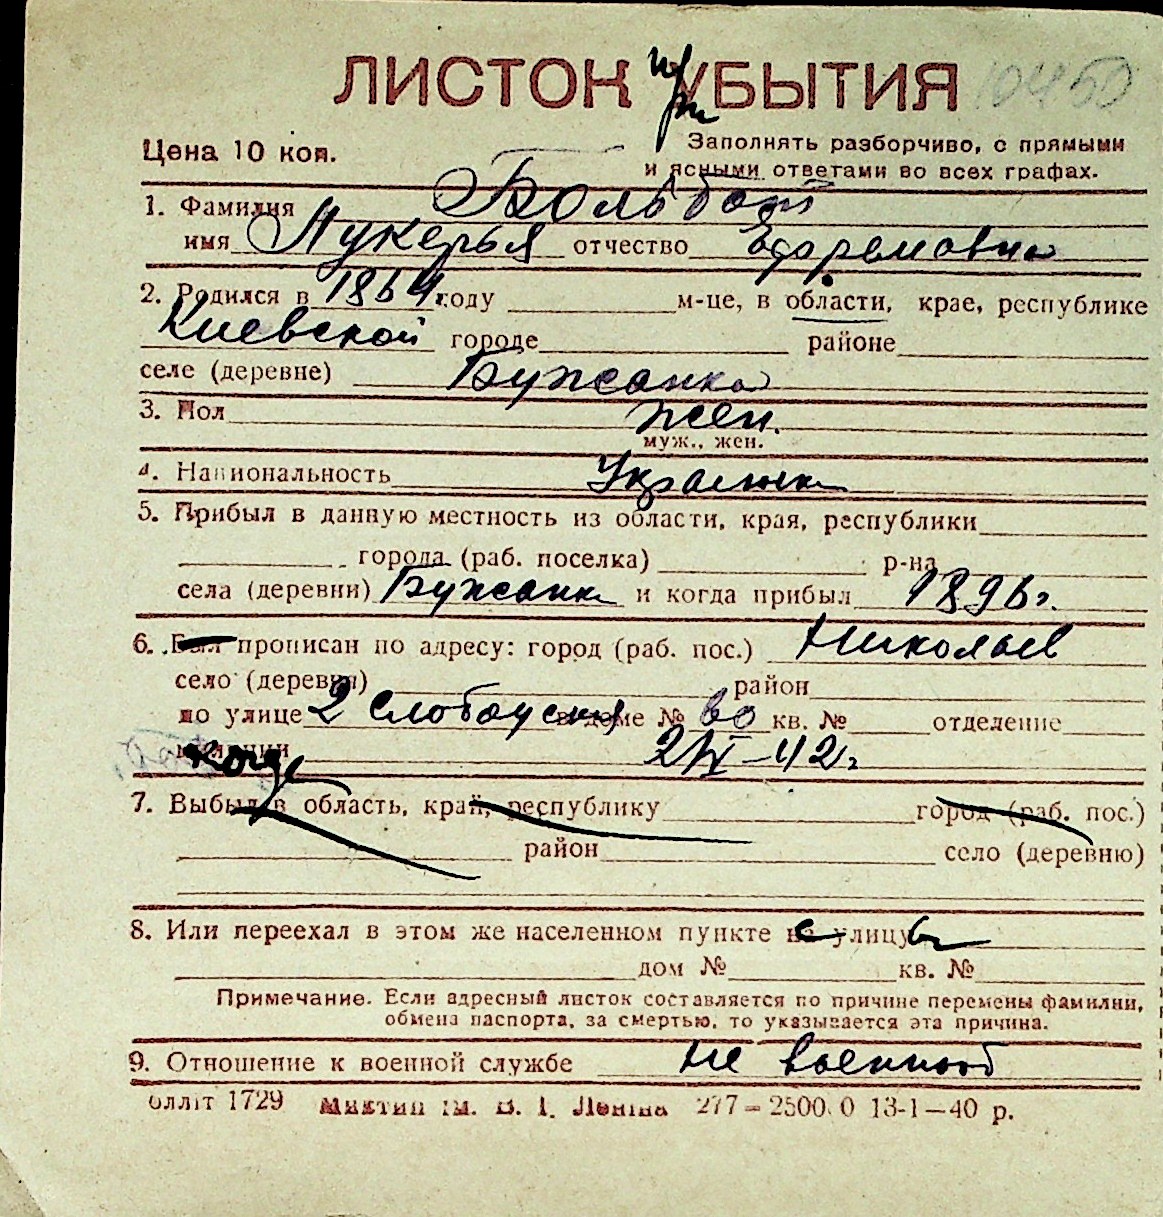 ЛИСТОК УБЫТИЯ
при
10450
Цена 10 коп.
Заполнять разборчиво, с прямыми
и ясными ответами во всех графах.
1. Фамилия Больбат
имя Лукерья отчество Ефремовна
2. Родился в 1864 году м-це, в области, крае, республике
Киевской городе районе
селе (деревне) Бужанка
3. Пол жен.
муж., жен.
4. Национальность Украинка
5. Прибыл в данную местность из области, края, республики
города (раб. поселка) р-на
села (деревни) Бужанка и когда прибыл 1896г.
6. Был прописан по адресу: город (раб. пос.) Николаев
село (деревня) район
по улице 2 Слободская в доме № 60 кв. № отделение
милиции 2/IX-42г.
когда
7. Выбыл в область, край, республику город (раб. пос.)
район село (деревню)
8. Или переехал в этом же населенном пункте на улицу
с в
дом № кв. №
Примечание. Если адресный листок составляется по причине перемены фамилии,
обмена паспорта, за смертью, то указывается эта причина.
9. Отношение к военной службе не военнооб
1729 277—2500.0 13-1—40 р.